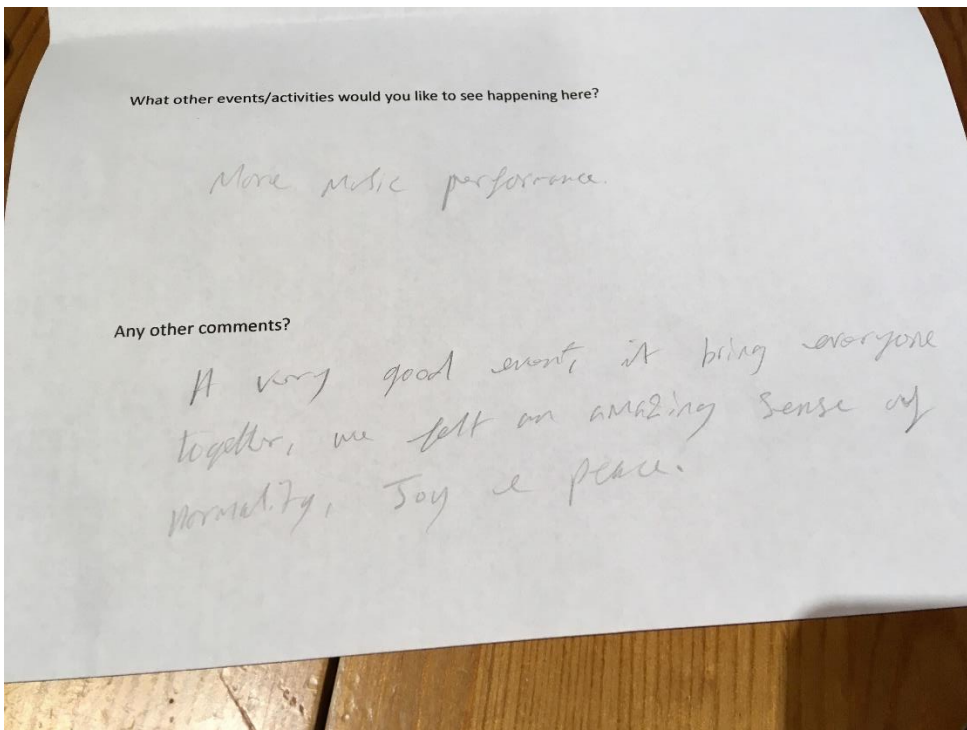 What other events/activities would you like to see happening here?
More music performance.
Any other comments?
A very good event, it bring everyone
together, we felt an amazing sense of
normality, Joy & peace.